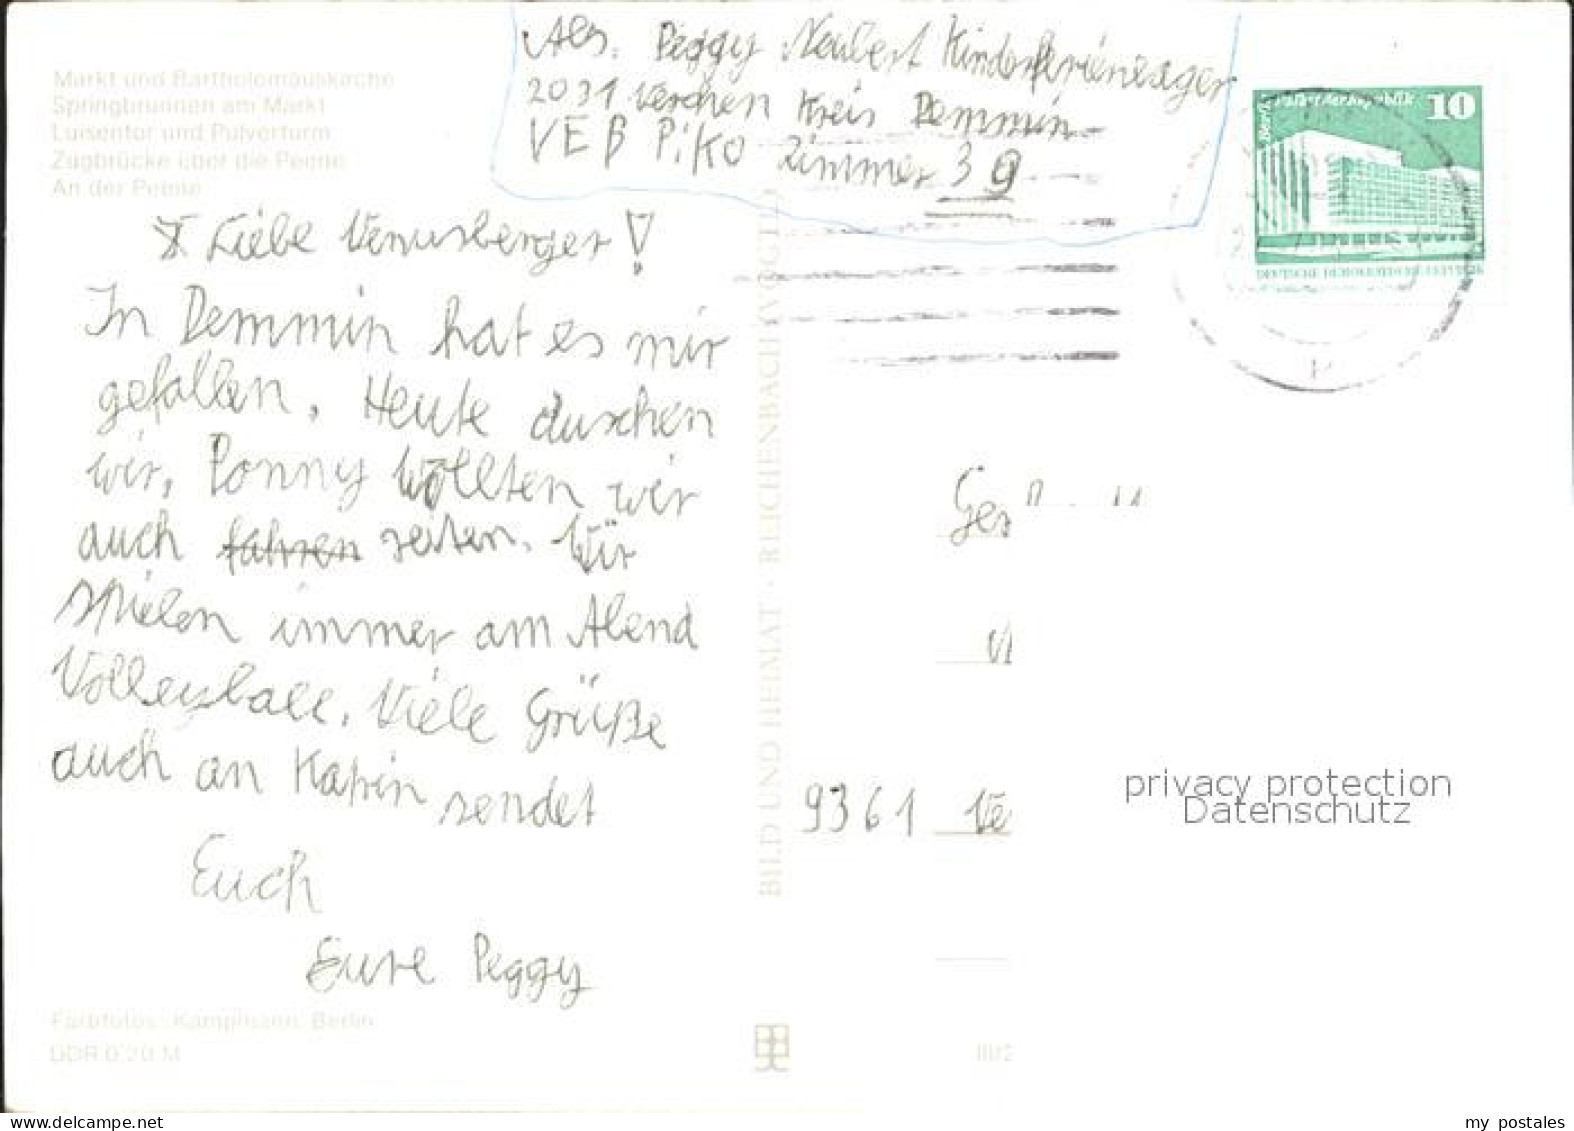 Abs. Peggy Neubert Kinderferienlager
2031 Verchen Kreis Demmin
VEB PiKO Zimmer 39
Markt und Bartholomäuskirche
Springbrunnen am Markt
Luisentor und Pulverturm
Zugbrücke über die Peene
An der Peene
Berlin Palast der Republik 10
DEUTSCHE DEMOKRATISCHE REPUBLIK
Liebe Venusberger!
In Demmin hat es mir
gefallen. Heute duschen
wir, Ponny wollten wir
auch fahren reiten. Wir
spielen immer am Abend
Volleyball. Viele Grüße
auch an Katrin sendet
Euch
Eure Peggy
BILD UND HEIMAT · REICHENBACH (VOGTL)
9361 Ve
privacy protection
Datenschutz
Farbfotos: Kampmann, Berlin
DDR 0,20 M
delcampe.net
my_postales